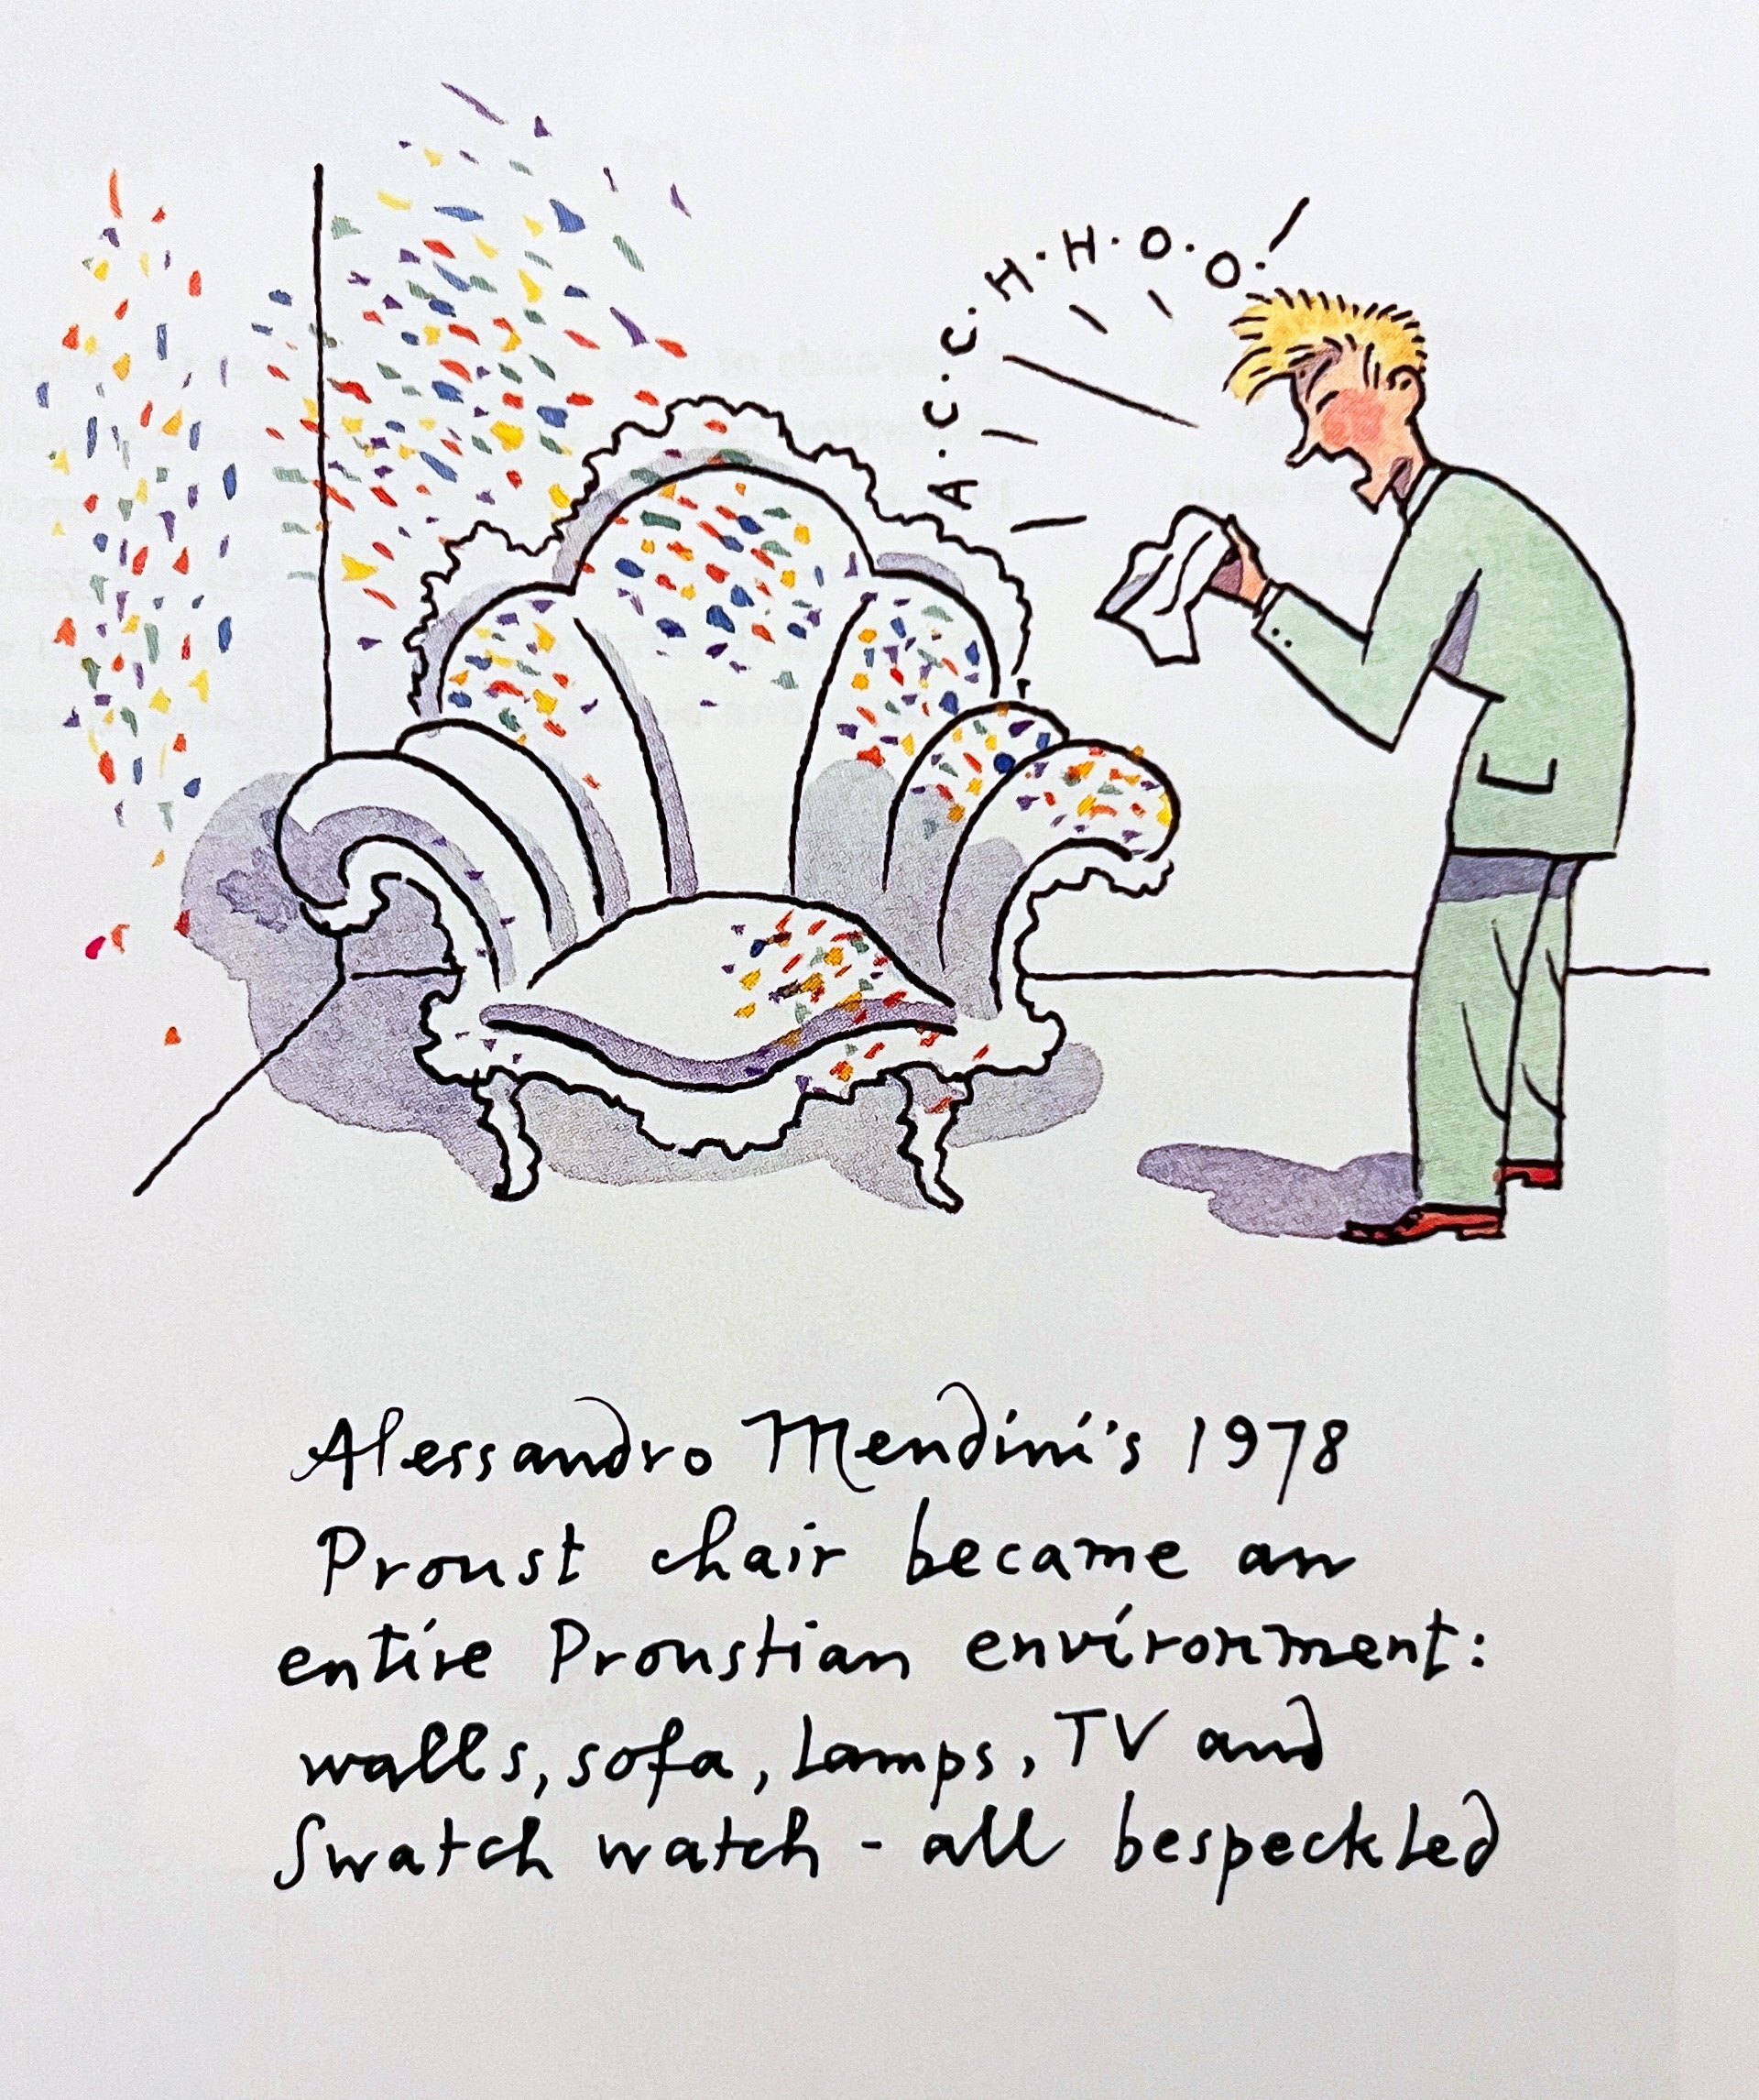 A.C.C.H.H.O.O.!
Alessandro Mendini's 1978
Proust chair became an
entire Proustian environment:
walls, sofa, lamps, TV and
Swatch watch - all bespeckled